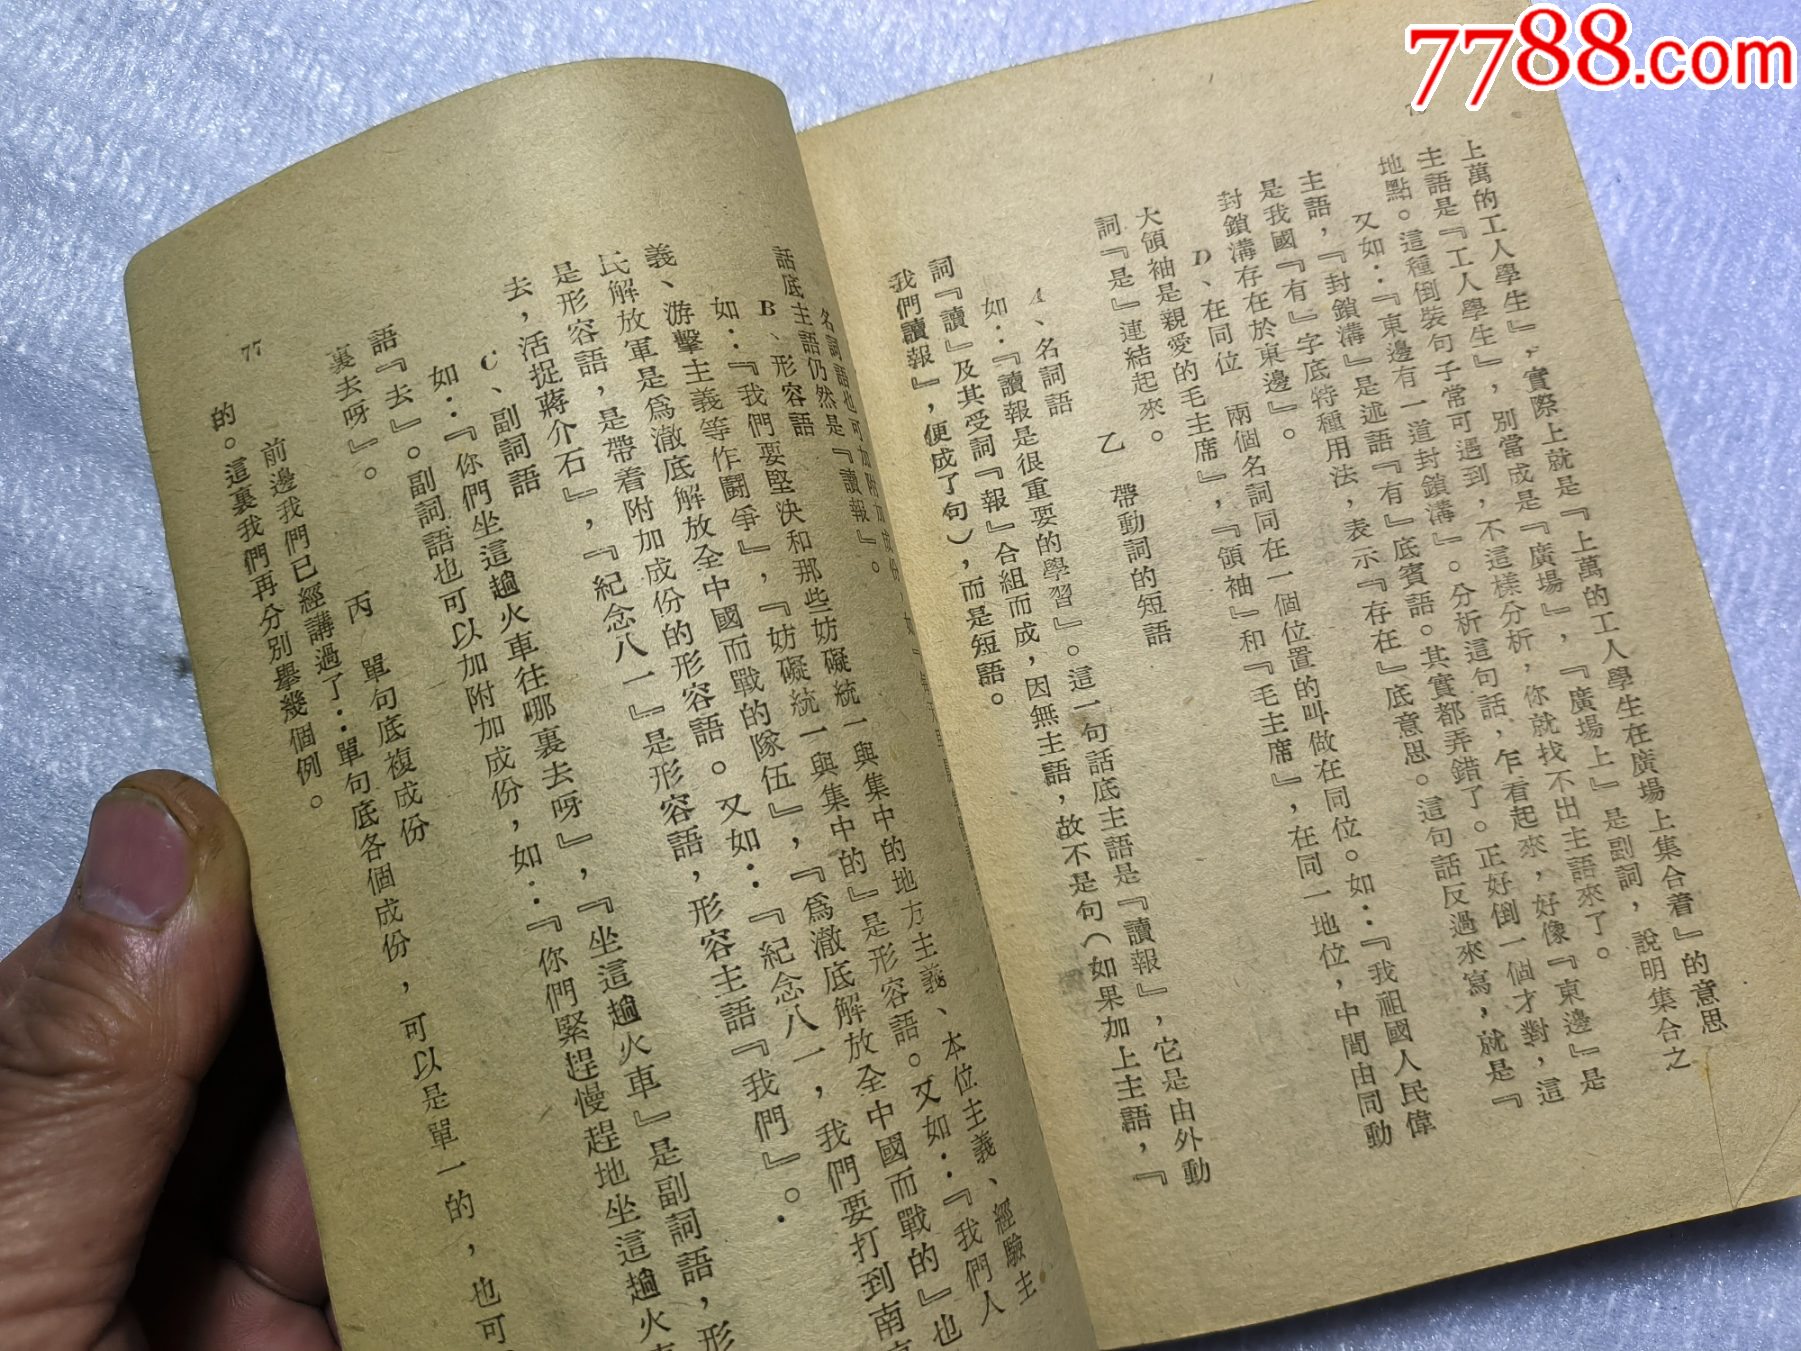 7788.com
上萬的工人學生』，實際上就是『上萬的工人學生在廣場上集合着』的意思
主語是『工人學生』，別當成是『廣場』，『廣場上』是副詞，說明集合之
地點。這種倒裝句子常可遇到，不這樣分析，你就找不出主語來了。
又如：『東邊有一道封鎖溝』。分析這句話，乍看起來，好像『東邊』是
主語，『封鎖溝』是述語『有』底賓語。其實都弄錯了。正好倒一個才對，這
是我國『有』字底特種用法，表示『存在』底意思。這句話反過來寫，就是『
封鎖溝存在於東邊』。
D、在同位　兩個名詞同在一個位置的叫做在同位。如：『我祖國人民偉
大領袖是親愛的毛主席』，『領袖』和『毛主席』，在同一地位，中間由同動
詞『是』連結起來。
乙　帶動詞的短語
A、名詞語
如：『讀報是很重要的學習』。這一句話底主語是『讀報』，它是由外動
詞『讀』及其受詞『報』合組而成，因無主語，故不是句（如果加上主語，『
我們讀報』，便成了句），而是短語。
名詞語也可加附加成份
話底主語仍然是『讀報』。
B、形容語
如：『我們要堅決和那些妨礙統一與集中的地方主義、本位主義、經驗主
義、游擊主義等作鬭爭』，『妨礙統一與集中的』是形容語。又如：『我們人
民解放軍是爲澈底解放全中國而戰的隊伍』，『爲澈底解放全中國而戰的』也
是形容語，是帶着附加成份的形容語。又如：『紀念八一，我們要打到南
去，活捉蔣介石』，『紀念八一』是形容語，形容主語『我們』。
C、副詞語
如：『你們坐這趟火車往哪裏去呀』，『坐這趟火車』是副詞語，形
語『去』。副詞語也可以加附加成份，如：『你們緊趕慢趕地坐這趟火
裏去呀』。
丙　單句底複成份
前邊我們已經講過了：單句底各個成份，可以是單一的，也可
的。這裏我們再分別舉幾個例。
77